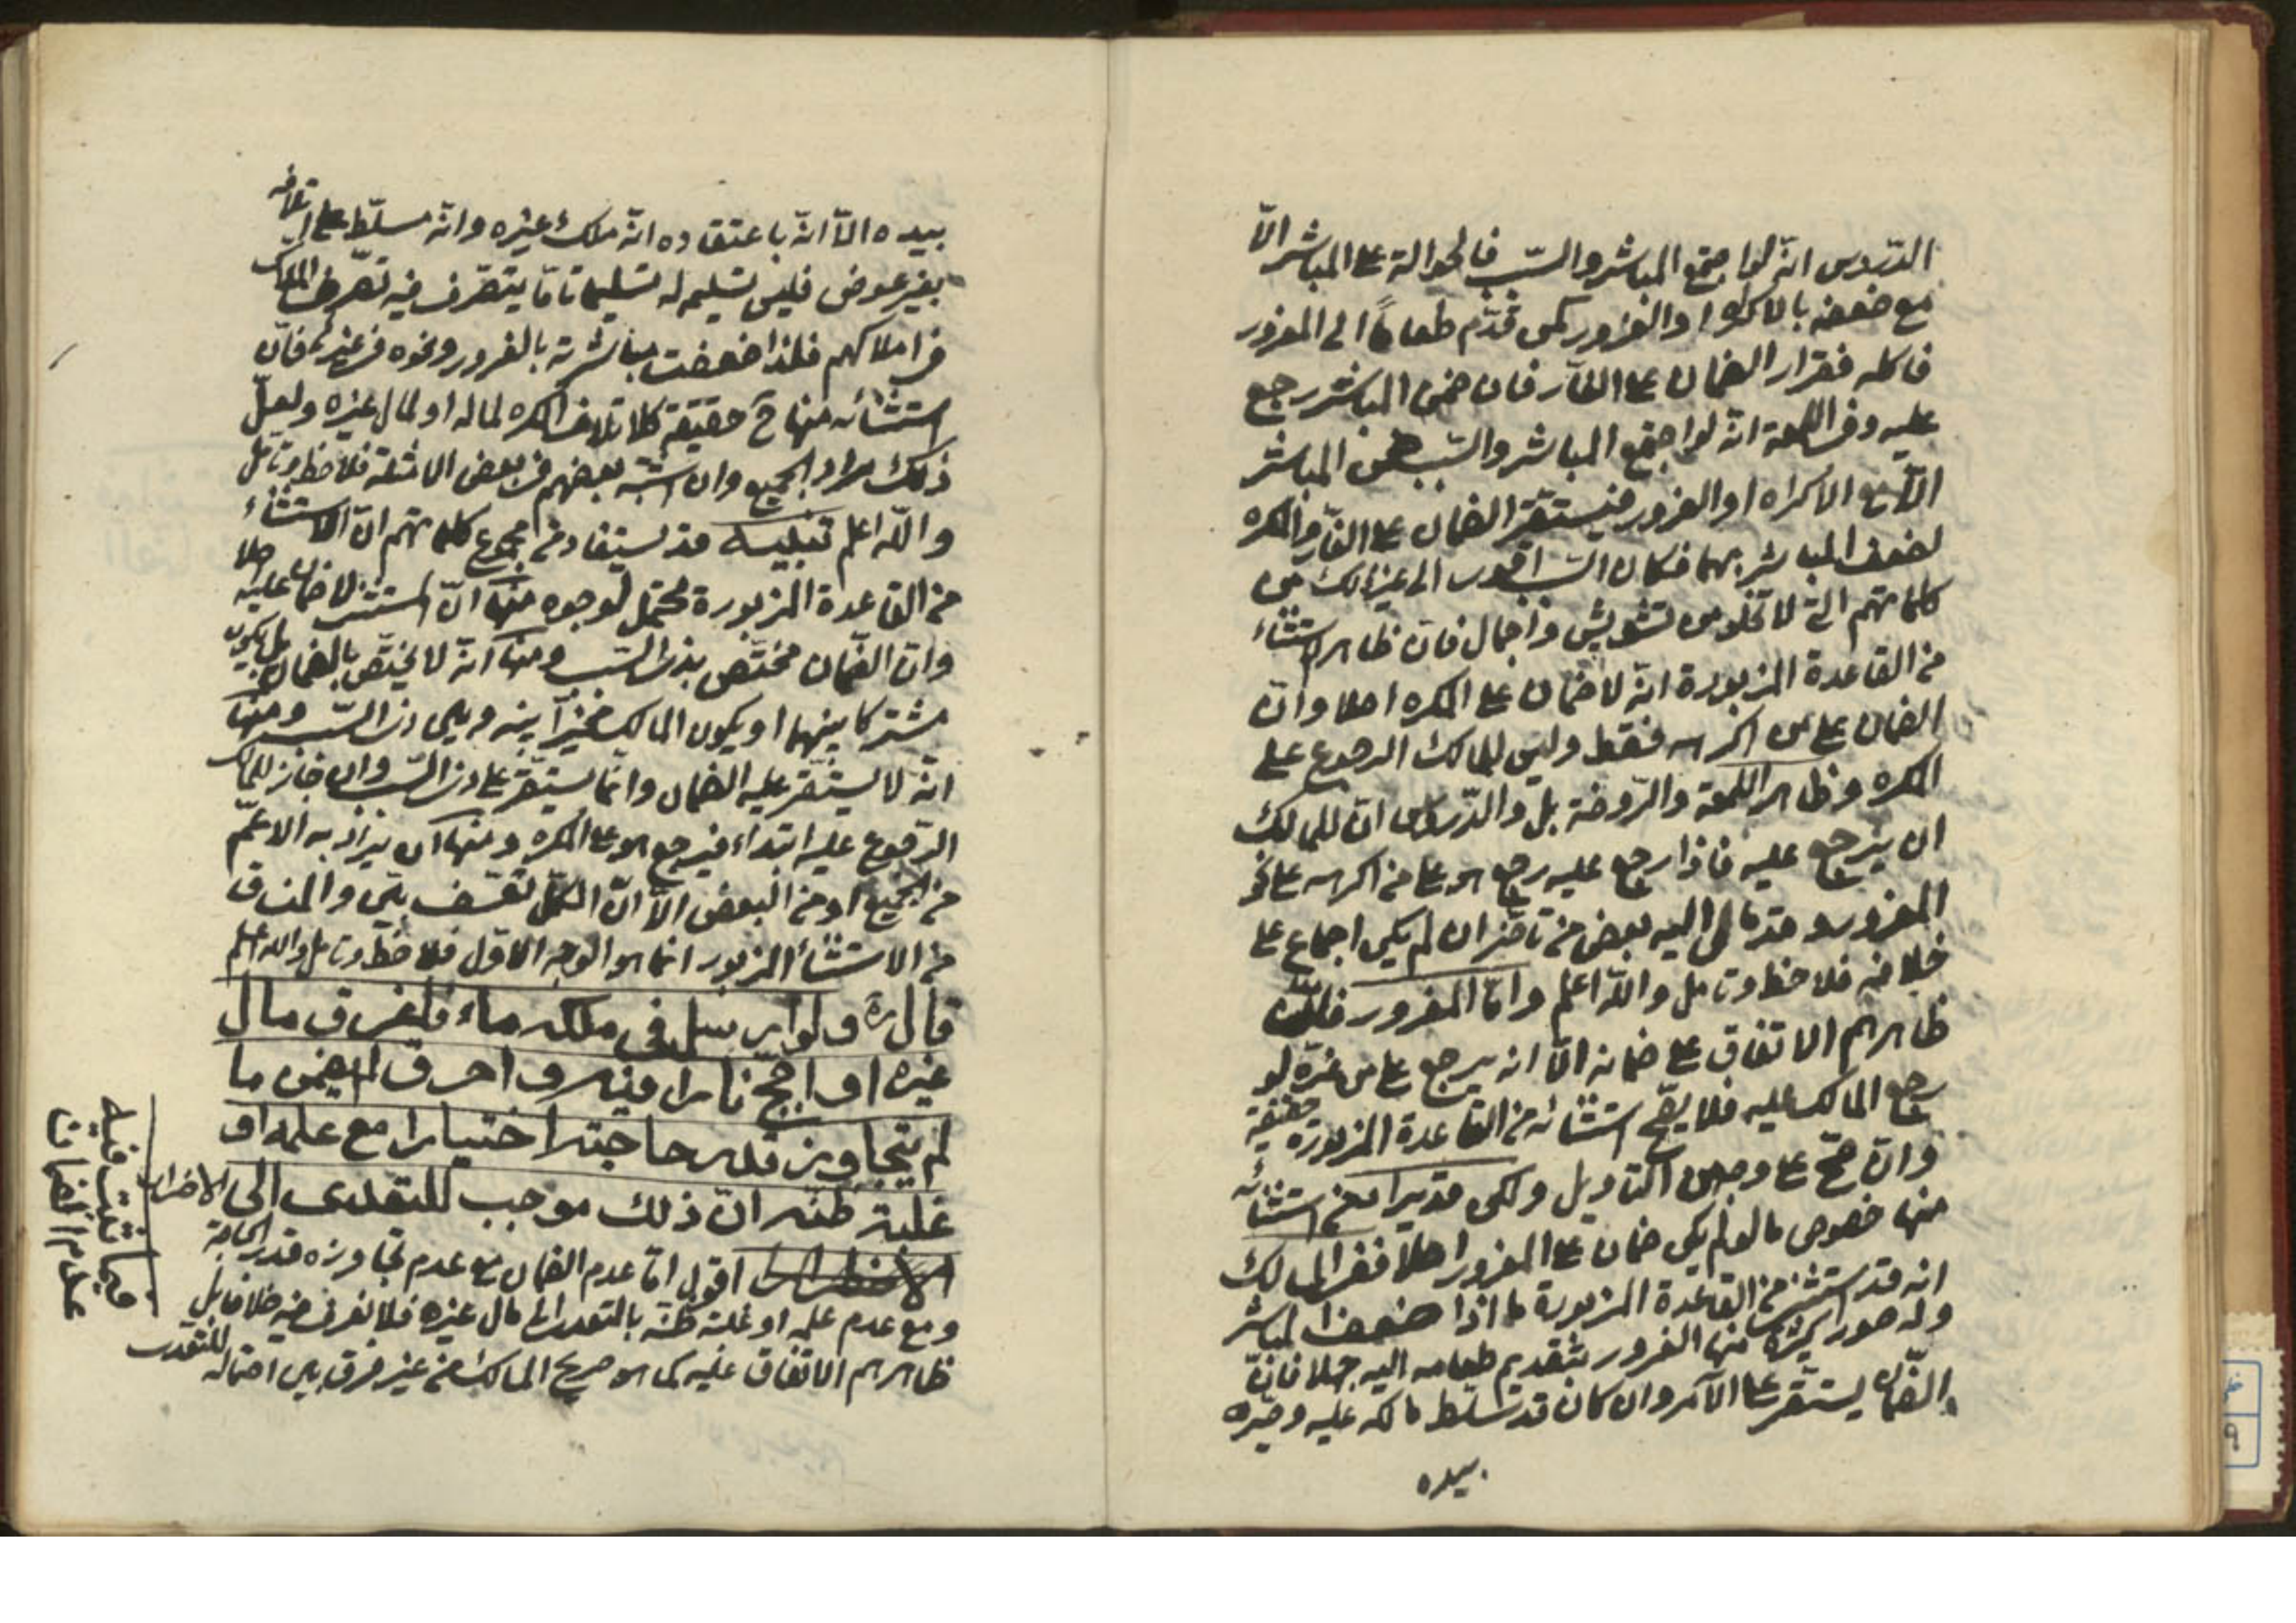 الدروس انّه لو اجتمع المباشر والسّبب فالحوالة على المباشر الّا
مع ضعفه بالاكراه او الغرور كمن قدّم طعاماً الى المغرور
فاكله فقرار الضمان على الغارّ فان ضمن المباشر رجع
عليه وفى اللمعة انّه لو اجتمع المباشر والسّبب ضمن المباشر
الّا مع الاكراه او الغرور فيستقرّ الضمان على الغارّ والمكره
لضعف المباشر بهما فكان السّبب اقوى الى غير ذلك من
كلماتهم الّتى لا تخلو من تشويش واجمال فان ظاهر استثناء
من القاعدة المزبورة انّه لا ضمان على المكره اصلا وانّ
الضمان على من اكرهه فقط وليس للمالك الرجوع على
المكره وظاهر اللمعة والرّوضة بل والدّروس انّ للمالك
ان يرجع عليه فاذا رجع عليه رجع هو على من اكرهه على نحو
المغرور وقد مال اليه بعض من تاخّر ان لم يكن اجماع على
خلافه فلاحظ وتامل واللّه اعلم وامّا المغرور
ظاهرهم الاتفاق على ضمانه الّا انه يرجع على من غرّه لو
رجع المالك عليه فلا يصحّ استثنائه من القاعدة المزبورة حقيقة
وان صحّ على وجه من التاويل ولكن قد يراد من استثنائه
منها خصوص ما لو لم يكن ضمان على المغرور اصلا ففى المسالك
انه قد استثنى من القاعدة المزبورة ما اذا ضعف المباشر
وله صور كثيرة منها الغرور بتقديم طعامه اليه جهلا فانّ
الضّمان يستقرّ على الآمر وان كان قد تسلّط مالكه عليه وصيّره
بيده
بيده الّا انّه باعتقاده انّه ملك غيره وانّه مسلّط على اتلافه
بغير عوض فليس تسليمه له تسليما تامّا يتصرّف فيه تصرّف الملّاك
فى املاكهم فلذا ضعفت مباشرته بالغرور ونحوه فى غيره فانّ
استثنائه منها ح حقيقة كاتلاف المكره لماله او لمال غيره ولعلّ
ذلك مراد الجميع وان اشتبه بعضهم فى بعض الامثلة فلاحظ وتامل
واللّه اعلم تنبيه قد يستفاد من مجموع كلماتهم انّ الاستثناء
من القاعدة المزبورة محتمل لوجوه منها انّ المستثنى لا ضمان عليه اصلا
وانّ الضّمان مختّص بذى السّبب ومنها انّه لا يختّص بالضمان بل يكون
مشتركا بينهما او يكون المالك مخيّرا بينه وبين ذى السّبب ومنها
انّه لا يستقّر عليه الضمان وانّما يستقّر على ذى السّبب وان جاز للمالك
الرّجوع عليه ابتداء فيرجع هو على المكره ومنها ان يراد به الاعمّ
من الجميع او من البعض الّا انّ الكلّ تعسّف بيّن والمنساق
من الاستثناء المزبور انما هو الوجه الاوّل فلاحظ وتامل واللّه اعلم
قال ره ولو ارسل فى ملكه ماء فاغرق مال
غيره او اجّج نارا فيه فاحرق لم يضمن ما
لم يتجاوز قدر حاجته اختيارا مع علمه او
غلبة ظنّه انّ ذلك موجب للتعدى الى الاضرار
اقول امّا عدم الضمان مع عدم تجاوزه قدر الحاجة
ومع عدم علمه او غلبة ظنّه بالتعدى الى مال غيره فلا نعرف فيه خلافا بل
ظاهرهم الاتفاق عليه كما هو صريح المسالك من غير فرق بين احتماله للتعدى
فيما تثبت فيه
عدم الضمان